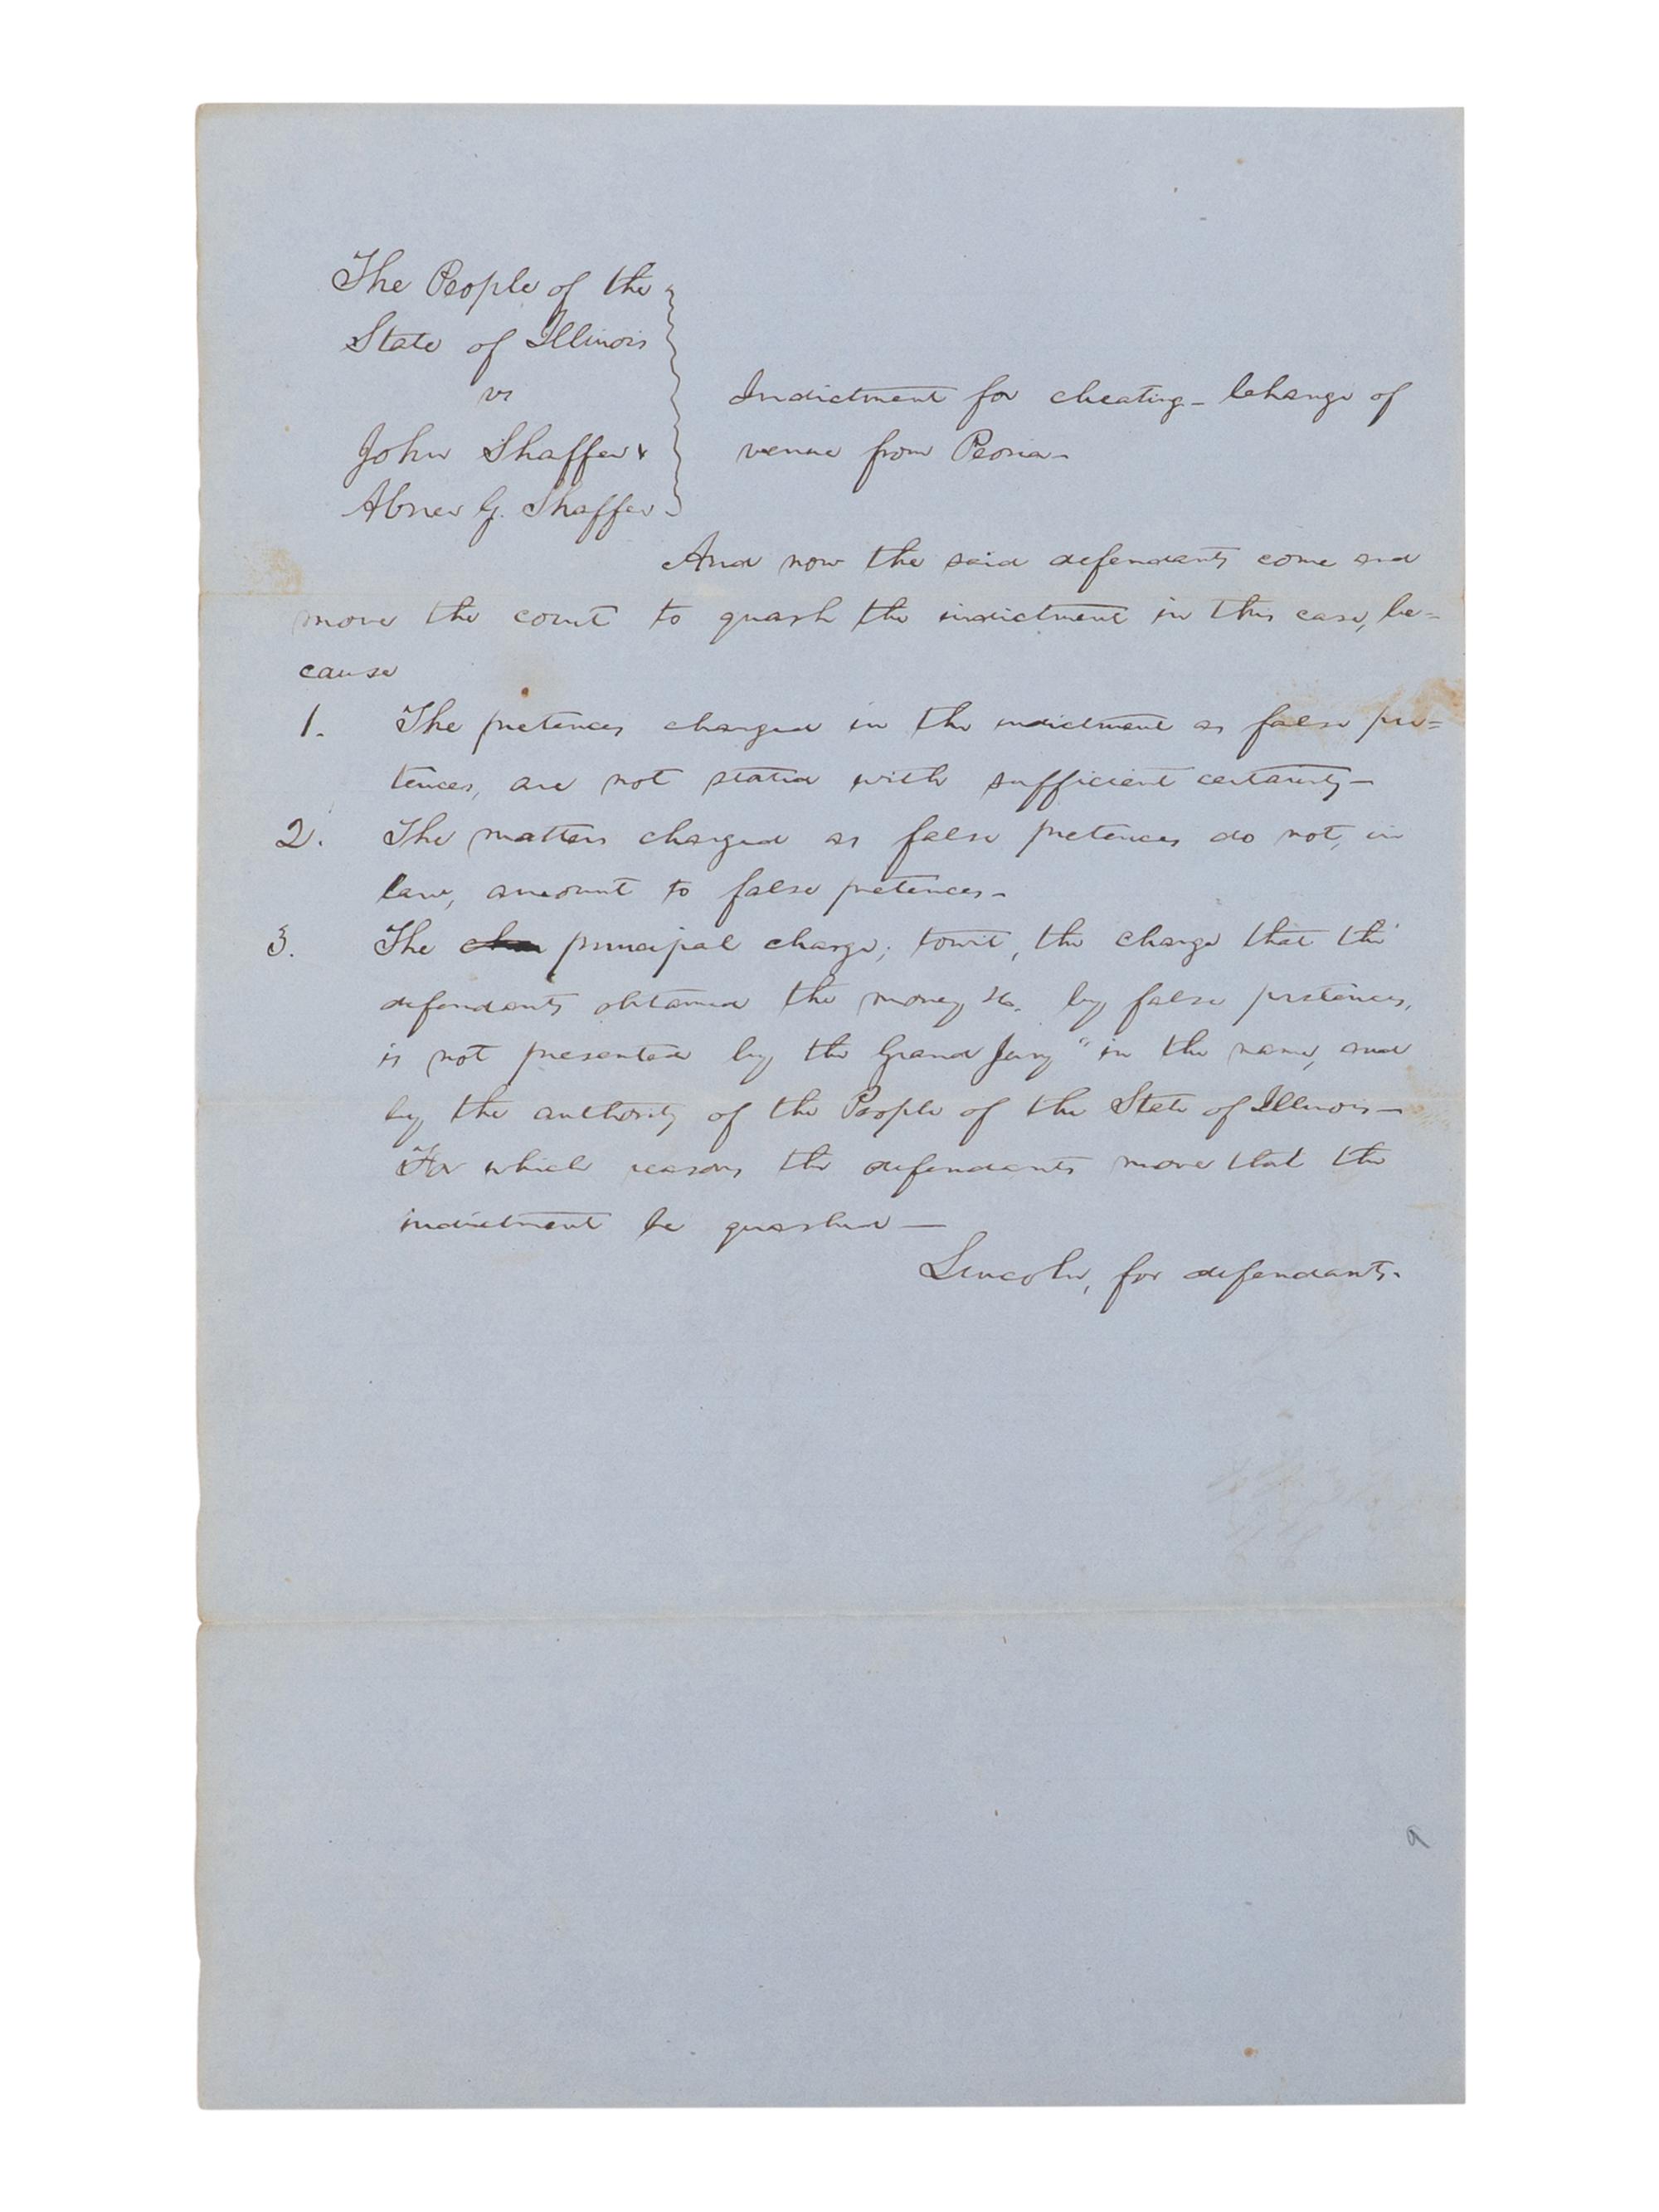 The People of the
State of Illinois
vs
John Shaffer &
Abner G. Shaffer
Indictment for cheating - Change of
venue from Peoria -
And now the said defendants come and
move the court to quash the indictment in this case, be=
cause
1. The pretences charged in the indictment as false pre=
tences, are not stated with sufficient certainty -
2. The matters charged as false pretences do not, in
law, amount to false pretences -
3. The principal charge; towit, the charge that the
defendants obtained the money &c. by false pretences,
is not presented by the Grand Jury "in the name, and
by the authority of the People of the State of Illinois -
For which reasons the defendants move that the
indictment be quashed -
Lincoln, for defendants.
9